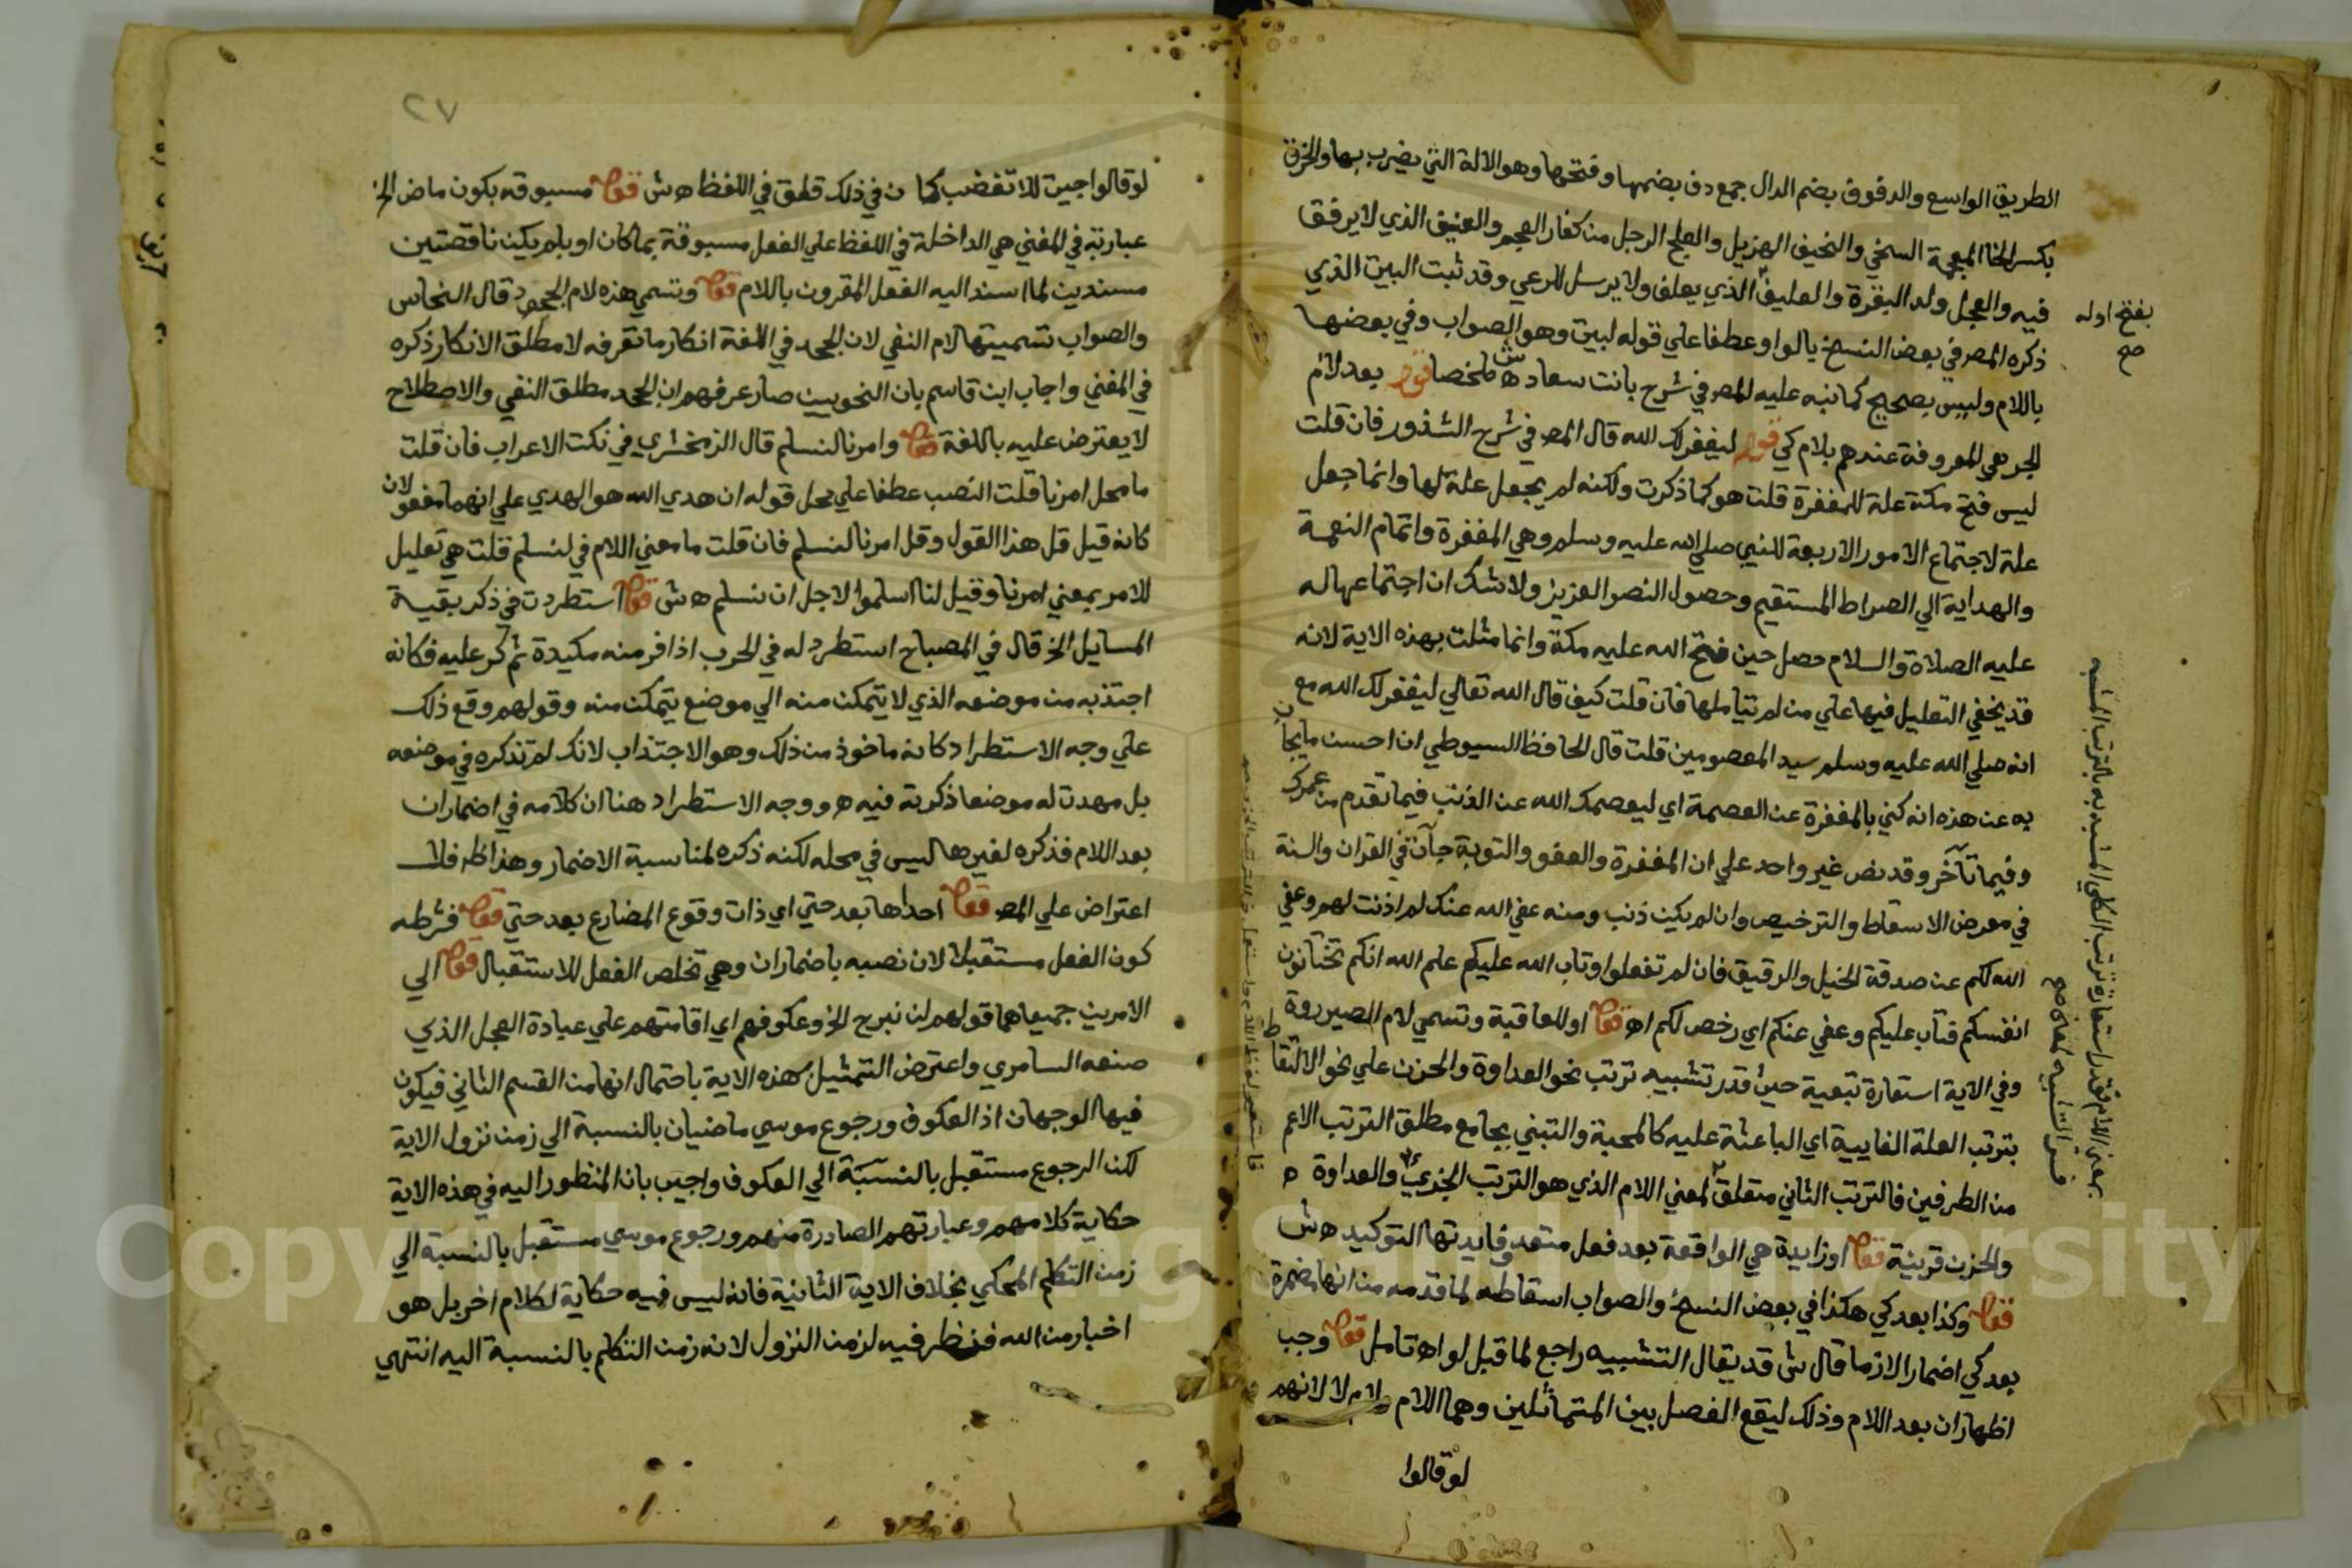 الطريق الواسع والدفوف بضم الدال جمع دف بضمها وفتحها وهو الالة التي يضرب بها والخرق
بكسر الخا المعجمة السخي والنحيف الهزيل والعلج الرجل من كفار العجم والعنيف الذي لا يرفق
فيه والعجل ولد البقرة والعليف الذي يعلف ولا يرسل للرعي وقد ثبت البيت الذي
ذكره المص في بعض النسخ بالواو عطفا علي قوله لبيت وهو الصواب وفي بعضها
باللام وليس بصحيح كما نبه عليه المص في شرح بانت سعاد اه ش ملخصا قوله بعد لام
الجر هي المعروفة عندهم بلام كي قوله ليغفر لك الله قال المص في شرح الشذور فان قلت
ليس فتح مكة علة للمغفرة قلت هو كما ذكرت ولكنه لم يجعل علة لها وانما جعل
علة لاجتماع الامور الاربعة للنبي صلي الله عليه وسلم وهي المغفرة واتمام النعمة
والهداية الي الصراط المستقيم وحصول النصر العزيز ولا شك ان اجتماعها له
عليه الصلاة والسلام حصل حين فتح الله عليه مكة وانما مثلت بهذه الاية لانه
قد يخفي التعليل فيها علي من لم يتاملها فان قلت كيف قال الله تعالي ليغفر لك الله مع
انه صلي الله عليه وسلم سيد المعصومين قلت قال الحافظ السيوطي ان احسن ما يجاب
به عن هذه انه كني بالمغفرة عن العصمة اي ليعصمك الله عن الذنب فيما تقدم من عمرك
وفيما تأخر وقد نص غير واحد علي ان المغفرة والعفو والتوبة جآت في القران والسنة
في معرض الاسقاط والترخيص وان لم يكن ذنب ومنه عفي الله عنك لم اذنت لهم وعفي
الله لكم عن صدقة الخيل والرقيق فان لم تفعلوا وتاب الله عليكم علم الله انكم تختانون
انفسكم فتاب عليكم وعفي عنكم اي رخص لكم اه قوله او للعاقبة وتسمي لام الصيرورة
وفي الاية استعارة تبعية حيث قدر تشبيه ترتب نحو العداوة والحزن علي نحو الالتقاط
بترتب العلة الغايية اي الباعثة عليه كالمحبة والتبني بجامع مطلق الترتب الاعم
من الطرفين فالترتب الثاني متعلق لمعني اللام الذي هو الترتب الجزءي والعداوة
والحزن قرينة قوله او زايدة هي الواقعة بعد فعل متعد وفايدتها التوكيد اه ش
قوله وكذا بعد كي هكذا في بعض النسخ والصواب اسقاطه لما قدمه من انها مضمرة
بعد كي اضمارا لازما قال ش قد يقال التشبيه راجع لما قبل لو اه تامل قوله وجب
اظهار ان بعد اللام وذلك ليقع الفصل بين المتماثلين وهما اللام ولام لا لانهم
لو قالوا
بفتح اوله
صح
٢٧
لو قالوا جيت للا تغضب كان في ذلك قلق في اللفظ اه ش قوله مسبوقه بكون ماض الخ
عبارته في المغني هي الداخلة في اللفظ علي الفعل مسبوقة بما كان او بلم يكن ناقصتين
مسندين لما اسند اليه الفعل المقرون باللام قوله وتسمي هذه لام الجحود قال النحاس
والصواب تسميتها لام النفي لان الجحد في اللغة انكار ما تعرفه لا مطلق الانكار ذكره
في المغني واجاب ابن قاسم بان النحويين صار عرفهم ان الجحد مطلق النفي والاصطلاح
لا يعترض عليه باللغة قوله وامرنا لنسلم قال الزمخشري في نكت الاعراب فان قلت
ما محل امرنا قلت النصب عطفا علي محل قوله ان هدي الله هو الهدي علي انهما مفعولان
كانه قيل قل هذا القول وقل امرنا لنسلم فان قلت ما معني اللام في لنسلم قلت هي تعليل
للامر بمعني امرنا وقيل لنا اسلموا لاجل ان نسلم اه ش قوله استطردت في ذكر بقية
المسايل الخ قال في المصباح استطرد له في الحرب اذا فر منه مكيدة ثم كر عليه فكانه
اجتذبه من موضعه الذي لا يتمكن منه الي موضع يتمكن منه وقولهم وقع ذلك
علي وجه الاستطراد كانه ماخوذ من ذلك وهو الاجتذاب لانك لم تذكره في موضعه
بل مهدت له موضعا ذكرته فيه اه ووجه الاستطراد هنا ان كلامه في اضمار ان
بعد اللام فذكره لغيرها ليس في محله لكنه ذكره لمناسبة الاضمار وهذا ظ فلا
اعتراض علي المص قوله احداها بعد حتي اي ذات وقوع المضارع بعد حتي قوله فشرطه
كون الفعل مستقبلا لان نصبه باضمار ان وهي تخلص الفعل للاستقبال قوله الي
الامرين جميعا هما قولهم لن نبرح الخ وعكوفهم اي اقامتهم علي عبادة العجل الذي
صنعه السامري واعترض التمثيل بهذه الاية باحتمال انها من القسم الثاني فيكون
فيها الوجهان اذ العكوف ورجوع موسي ماضيان بالنسبة الي زمن نزول الاية
لكن الرجوع مستقبل بالنسبة الي العكوف واجيب بان المنظور اليه في هذه الاية
حكاية كلامهم وعبارتهم الصادرة منهم ورجوع موسي مستقبل بالنسبة الي
زمن التكلم المحكي بخلاف الاية الثانية فانه ليس فيه حكاية لكلام اخر بل هو
اخبار من الله فنظر فيه لزمن النزول لانه زمن التكلم بالنسبة اليه انتهي
Copyright © King Saud University